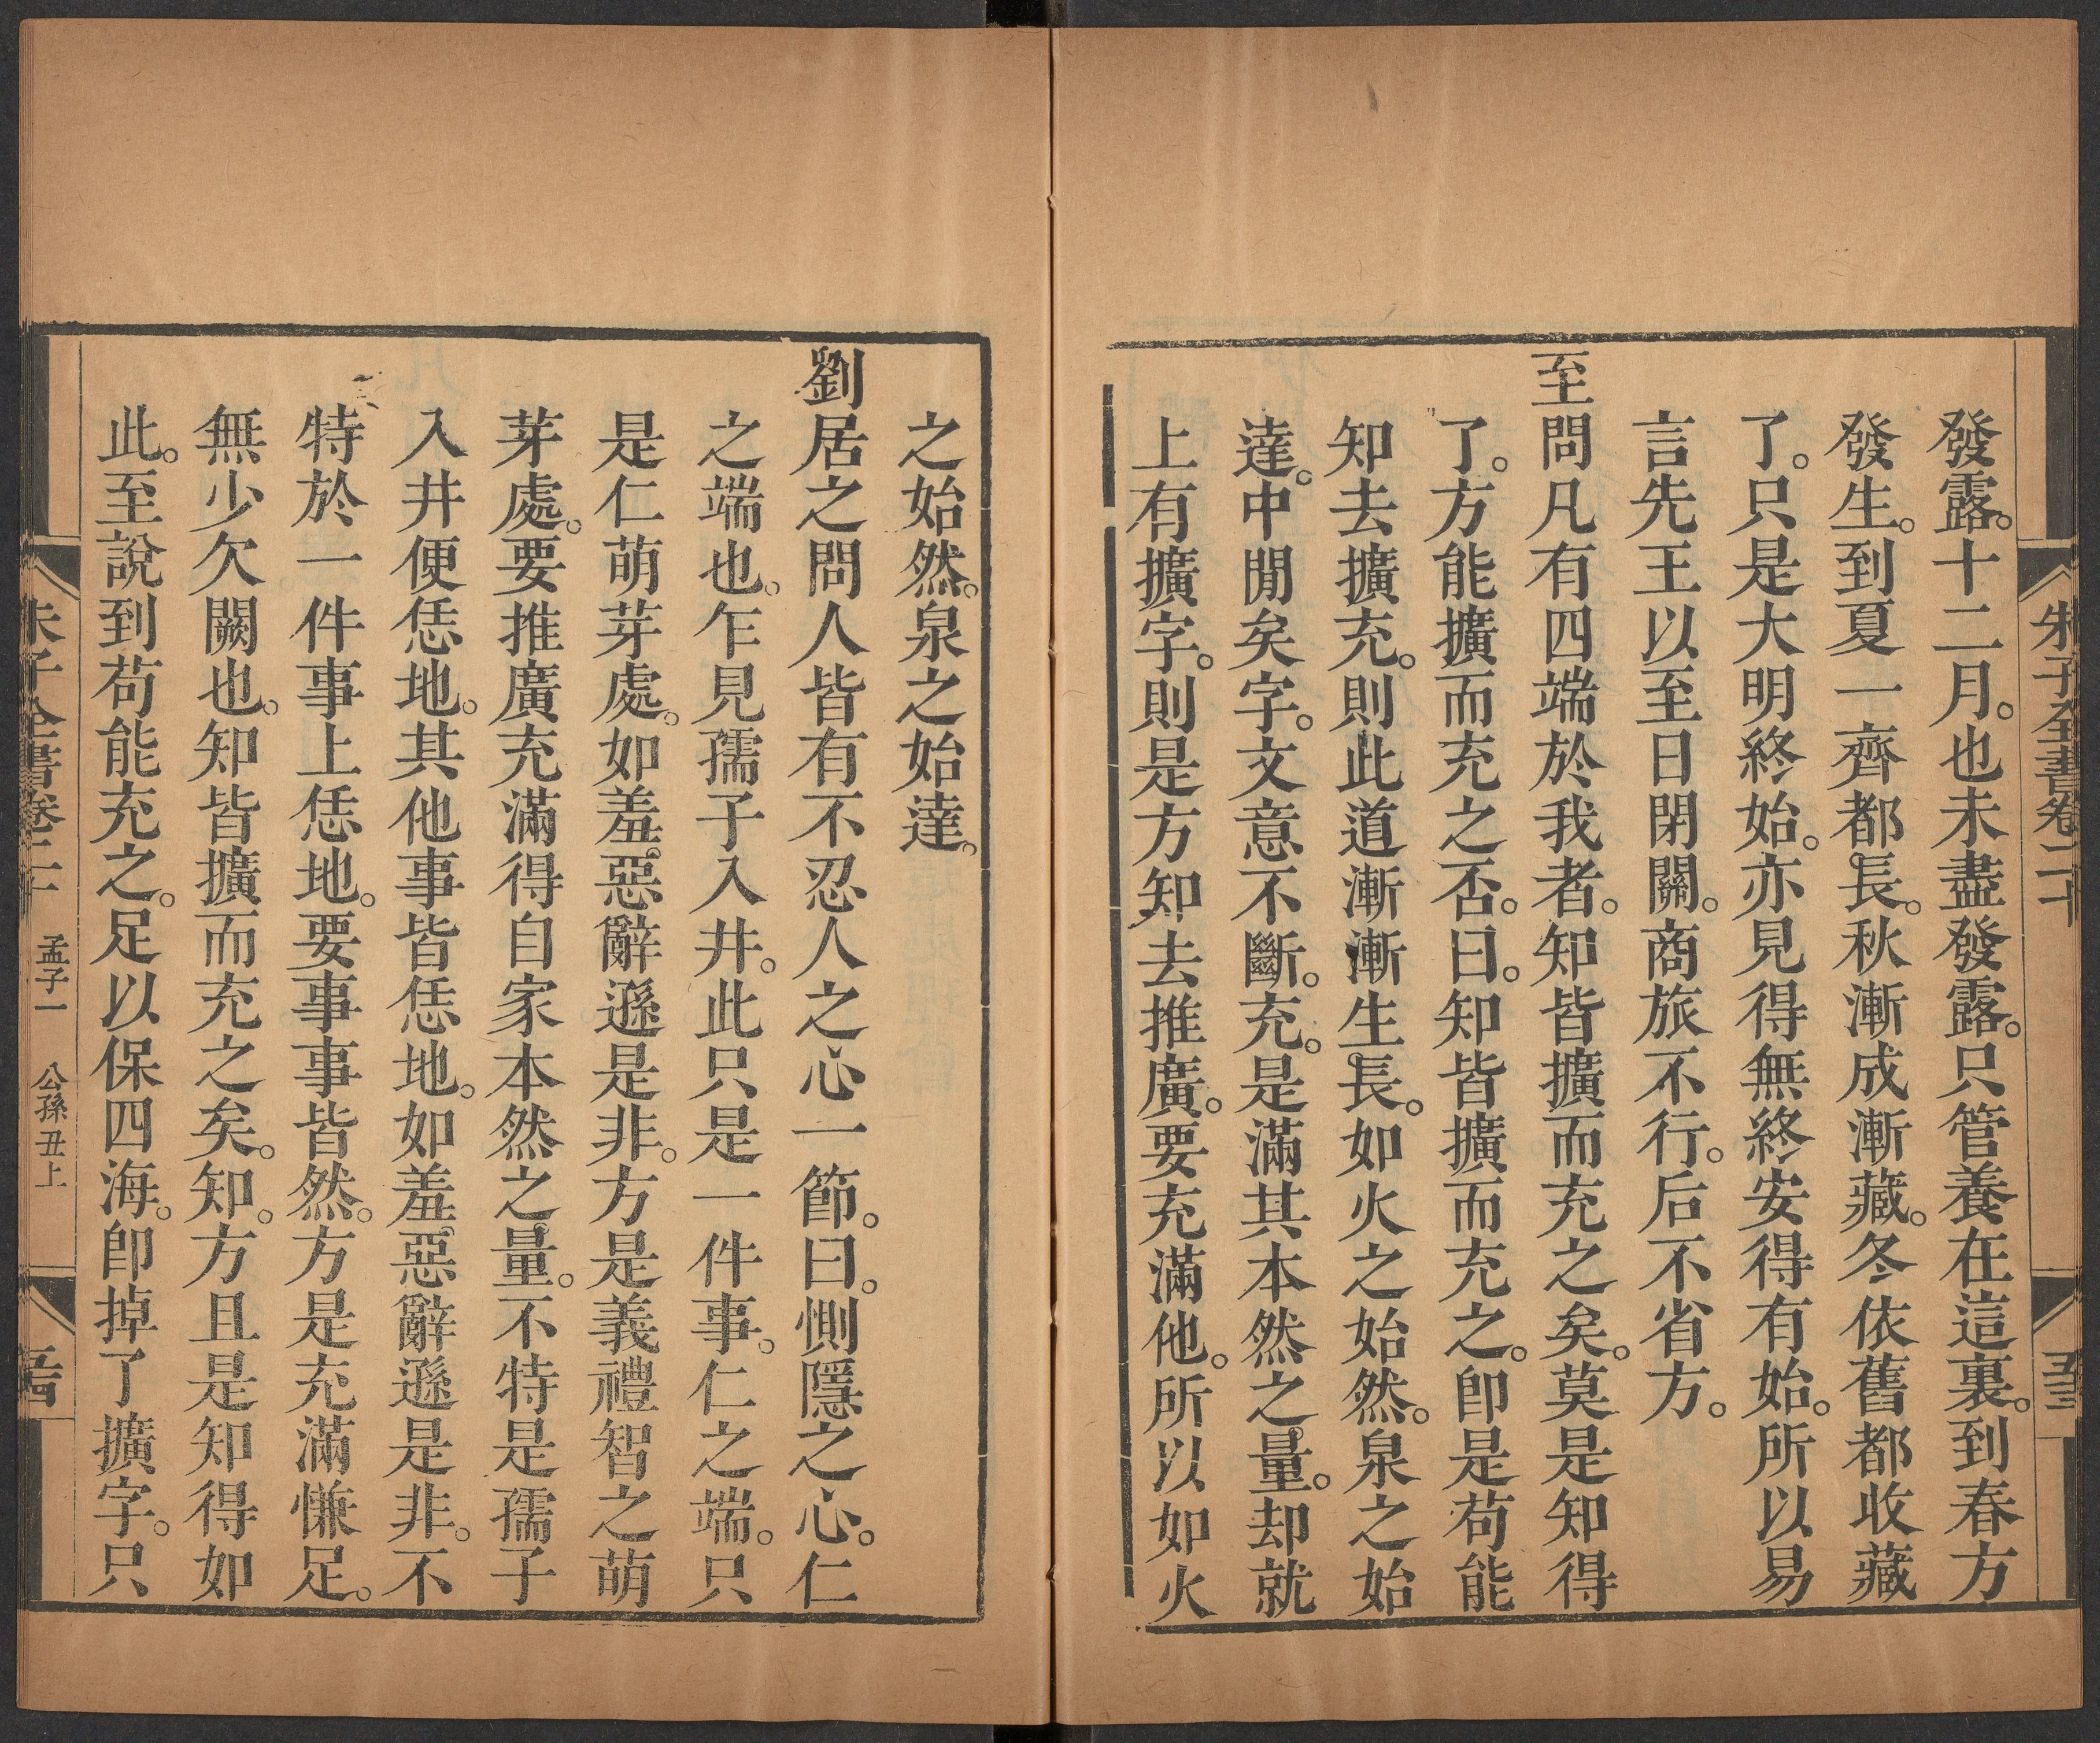 朱子全書卷二十
發露。十二月。也未盡發露。只管養在這裏。到春方
發生。到夏一齊都長。秋漸成漸藏。冬依舊都收藏
了。只是大明終始。亦見得無終安得有始。所以易
言先王以至日閉關。商旅不行。后不省方。
至問凡有四端於我者。知皆擴而充之矣。莫是知得
了。方能擴而充之否。曰。知皆擴而充之。卽是苟能
知去擴充。則此道漸漸生長。如火之始然。泉之始
達。中閒矣字。文意不斷。充。是滿其本然之量。却就
上有擴字。則是方知去推廣。要充滿他。所以如火
之始然。泉之始達。
劉居之問人皆有不忍人之心一節。曰。惻隱之心。仁
之端也。乍見孺子入井。此只是一件事。仁之端。只
是仁萌芽處。如羞惡辭遜是非。方是義禮智之萌
芽處。要推廣充滿得自家本然之量。不特是孺子
入井便恁地。其他事皆恁地。如羞惡辭遜是非。不
特於一件事上恁地。要事事皆然。方是充滿慊足。
無少欠闕也。知皆擴而充之矣。知。方且是知得如
此。至說到苟能充之。足以保四海。卽掉了擴字。只
朱子全書卷二十 孟子一 公孫丑上